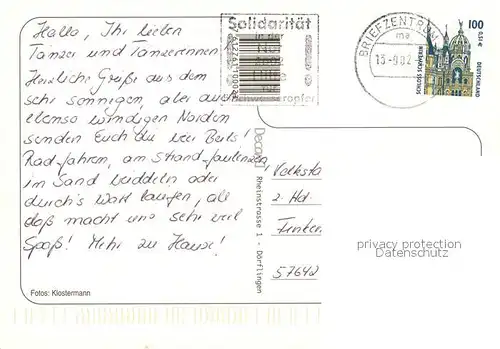 Hallo, Ihr lieben
Tänzer und Tänzerinnen!
Herzliche Grüße aus dem
sehr sonnigen, aber auch
ebenso windigen Norden
senden Euch die vier Beils!
Radfahren, am Strand faulenzen,
im Sand buddeln oder
durch's Watt laufen, all
daß macht uns sehr viel
Spaß! Mehr zu Hause!
Fotos: Klostermann
Solidarität
in der
Not
Hilfe
BRIEFZENTRUM
ma
100
0,51 €
DEUTSCHLAND
Rheinstrasse 1 - Dörflingen
2. Hd.
57642
privacy protection
Datenschutz